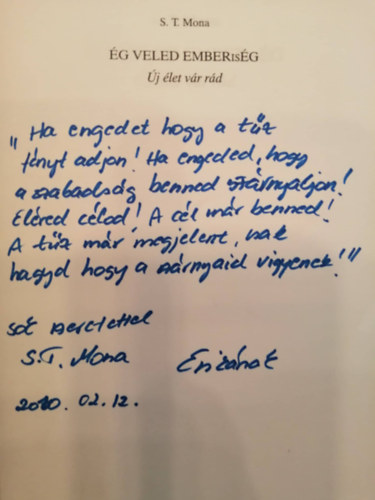 S. T. Mona
ÉG VELED EMBERISÉG
Új élet vár rád
„Ha engedet hogy a tűz
fényt adjon! Ha engeded, hogy
a szabadság benned szárnyaljon!
Eléred célod! A cél már benned!
A tűz már megjelent, csak
hagyd hogy a szárnyaid vigyenek!"
Sok szeretettel
S.T. Mona
2020. 02. 12.